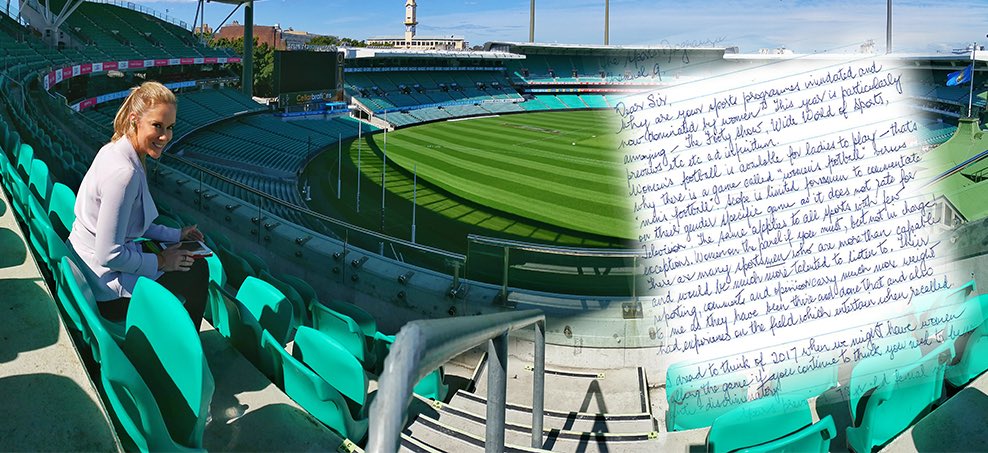 The Sports Programme
Channel 9
Dear Sir,
Why are your sports programmes inundated and
now dominated by women? This year is particularly
annoying – The Footy Show, Wide World of Sports,
etc etc ad infinitum.
Women's football is available for ladies to play – that's
why there is a game called "women's football" versus
"men's football". Scope is limited for women to commentate
on their gender specific game as it does not rate for
television – the same applies to all sports with few
exceptions. Women on the panel if you must, but not in charge –
there are many sportsmen who are more than capable
and would be much more talented to listen to. Their
reporting, comments and opinions carry much more weight
to me as they have been there and done that and also
had experiences on the field which entertain when recalled
dread to think of 2017 when we might have women
the game if you continue to think you need to be
discriminatory